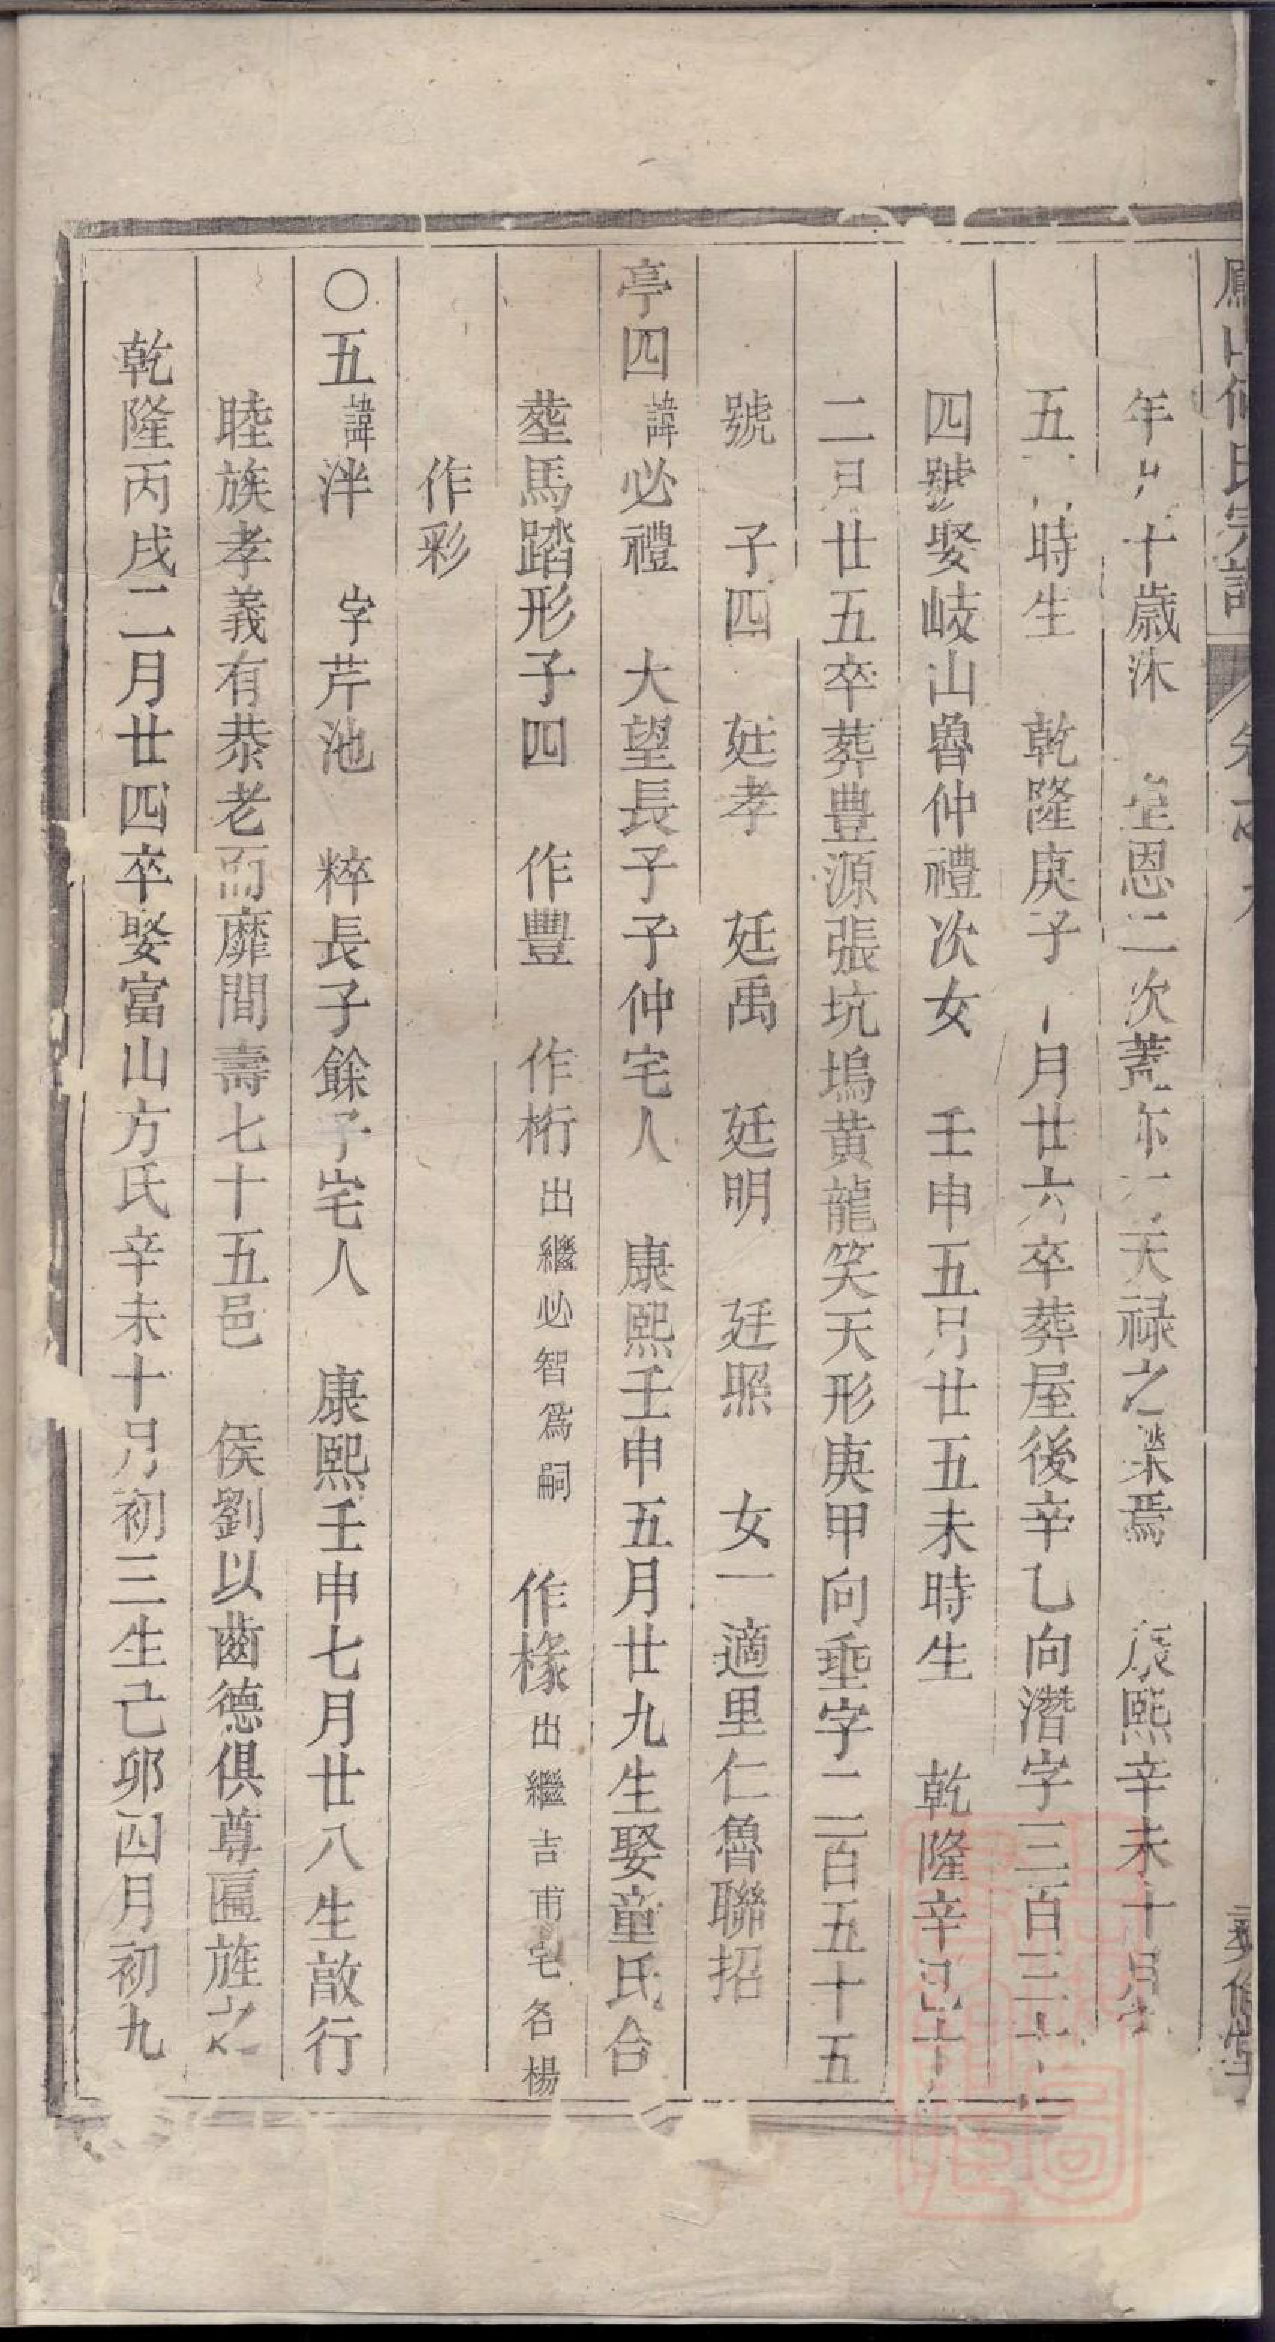 年 十歲沐 皇恩二次蓋亦 天禄之 焉 康熙辛未十月
五 時生 乾隆庚子 月廿六卒葬屋後辛乙向潛字三百三十
四號娶岐山魯仲禮次女 壬申五月廿五未時生 乾隆辛巳十
二月廿五卒葬豊源張坑塢黄龍笑天形庚甲向垂字二百五十五
號 子四 廷孝 廷禹 廷明 廷照 女一適里仁魯聯招
亭四諱必禮 大望長子子仲宅人 康熙壬申五月廿九生娶童氏合
塟馬踏形子四 作豐 作桁出繼必智爲嗣 作椽出繼吉甫宅名楊
作彩
○五諱泮 字芹池 粹長子餘子宅人 康熙壬申七月廿八生敵行
睦族孝義有恭老而靡間壽七十五邑 侯劉以齒德俱尊匾旌之
乾隆丙戌二月廿四卒娶富山方氏辛未十月初三生己卯四月初九